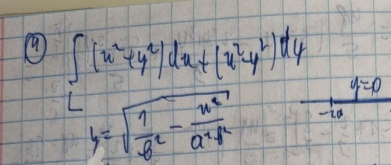 ④ ∫ (x²+y²)dx + (x²-y²)dy
L
y = √(1/b² - x²/(a²b²))
y=0
-2a